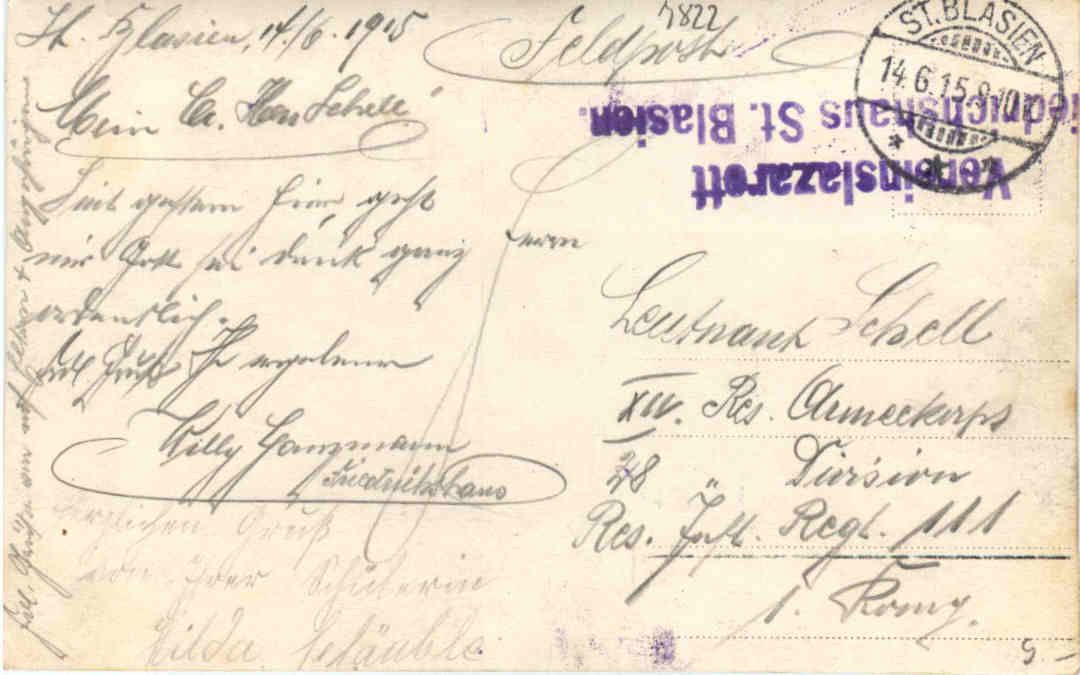 St. Blasien, 14./6. 1915
Mein lb. Herr Schell!
Seit gestern hier geht
mir Gott sei dank ganz
ordentlich.
Gruß Ihr ergebener
Willy
Friedrichshaus
Herzlichen Gruß
von Ihrer Schülerin
Hilda
4822
Feldpost
ST. BLASIEN
14.6.15.9-10V.
Vereinslazarett
Friedrichshaus St. Blasien.
Herrn
Leutnant Schell
XIV. Res. Armeekorps
28 " Division
Res. Inft. Regt. 111
1. Komp.
9.–